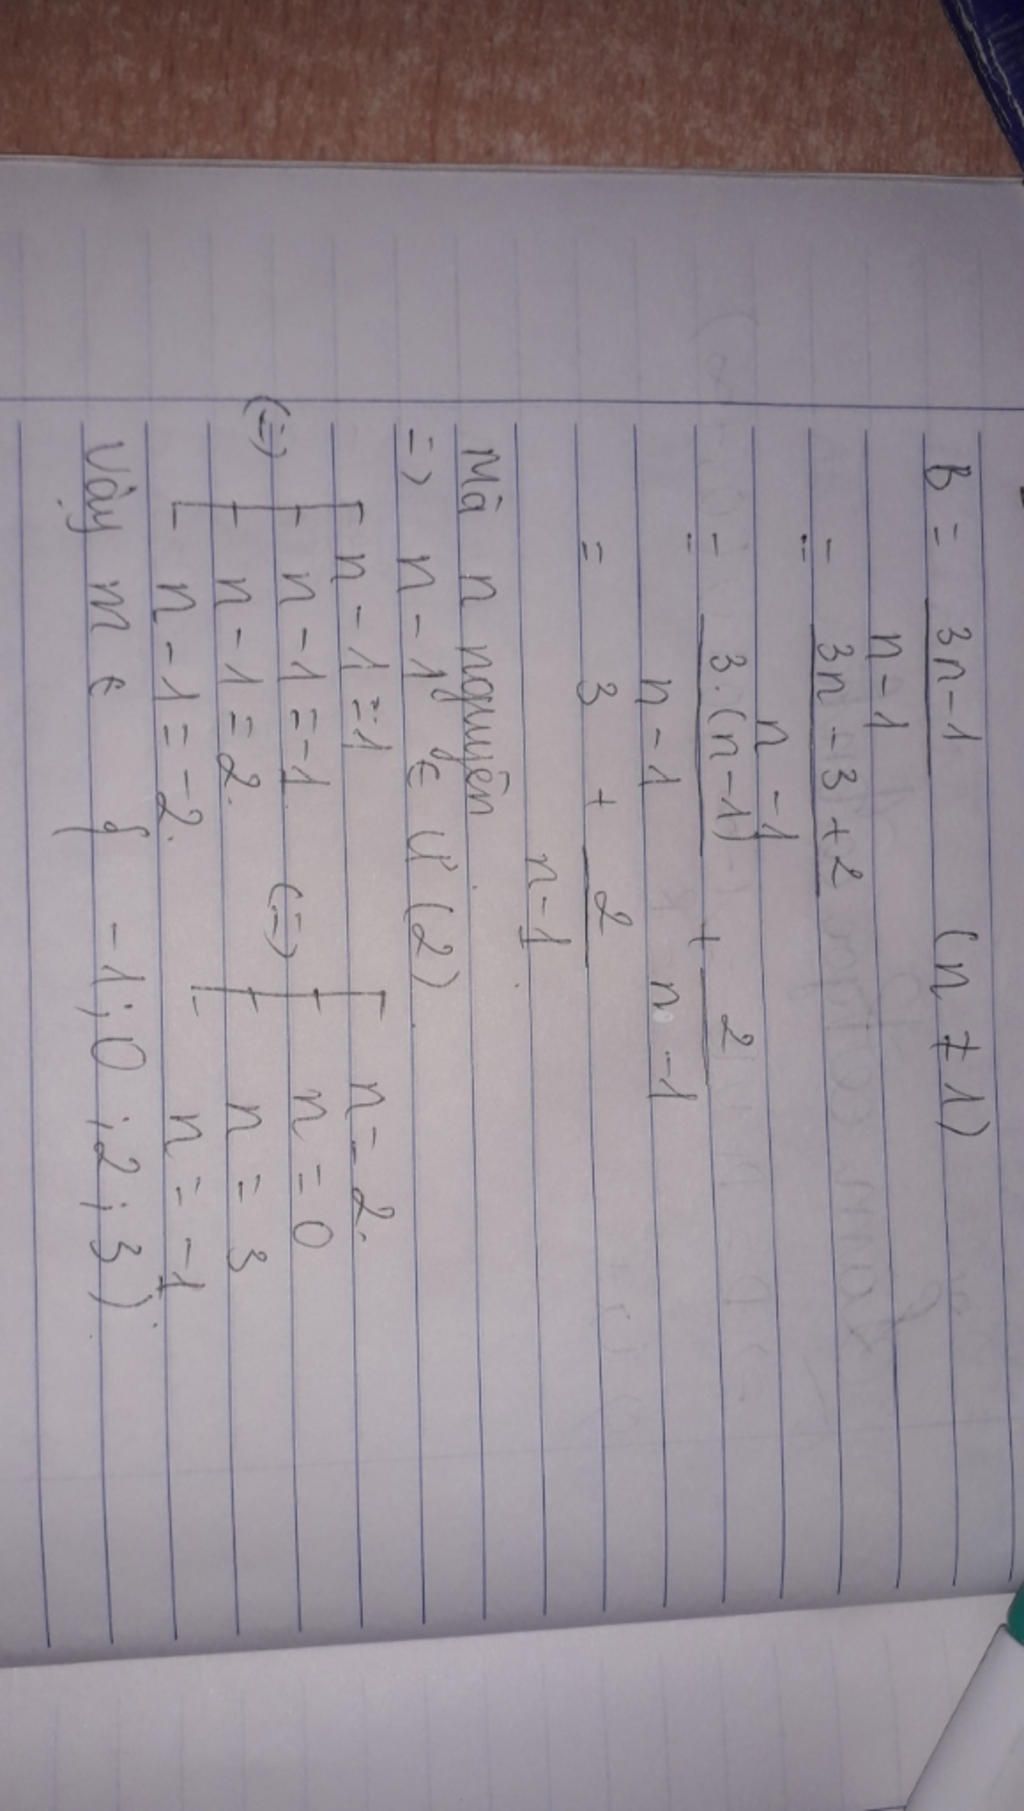 B = 3n-1 (n ≠ 1)
n-1
= 3n-3+2
n-1
= 3.(n-1) + 2
n-1 n-1
= 3 + 2
n-1
Mà n nguyên
=> n-1 ∈ Ư(2)
n-1=1 n=2.
n-1=-1 n=0
(=) n-1=2. (=) n=3
n-1=-2. n=-1
Vậy n ∈ { -1; 0; 2; 3}.